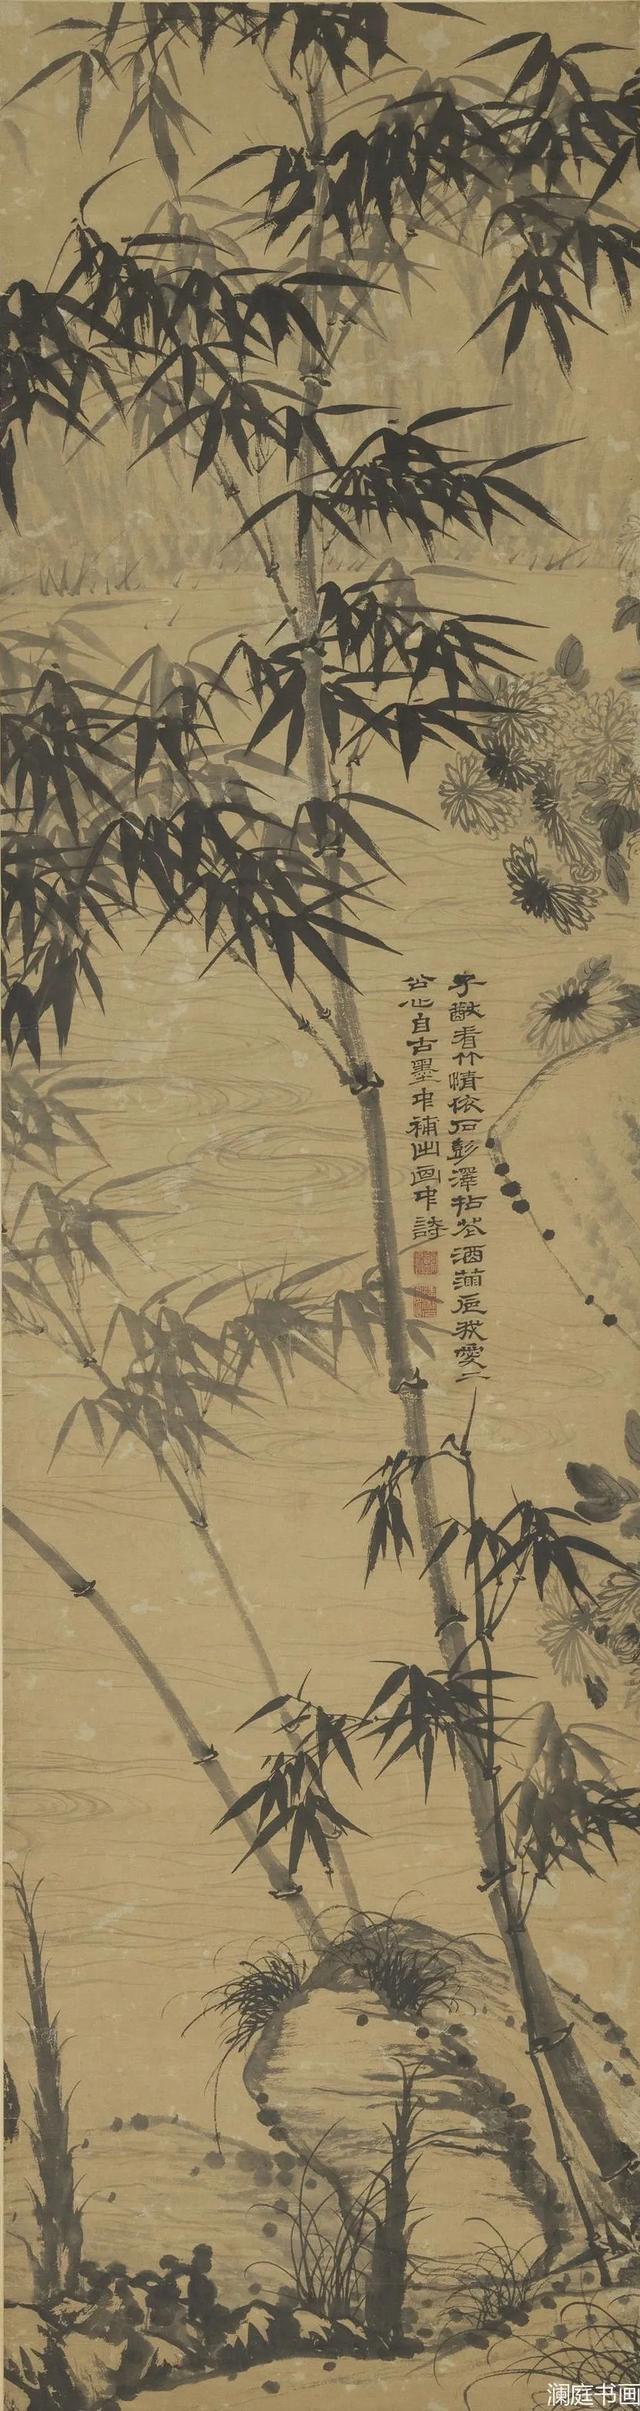 子猷看竹情依石彭澤拈花酒滿卮我愛二
公心自古墨中補出画中詩
澜庭书画